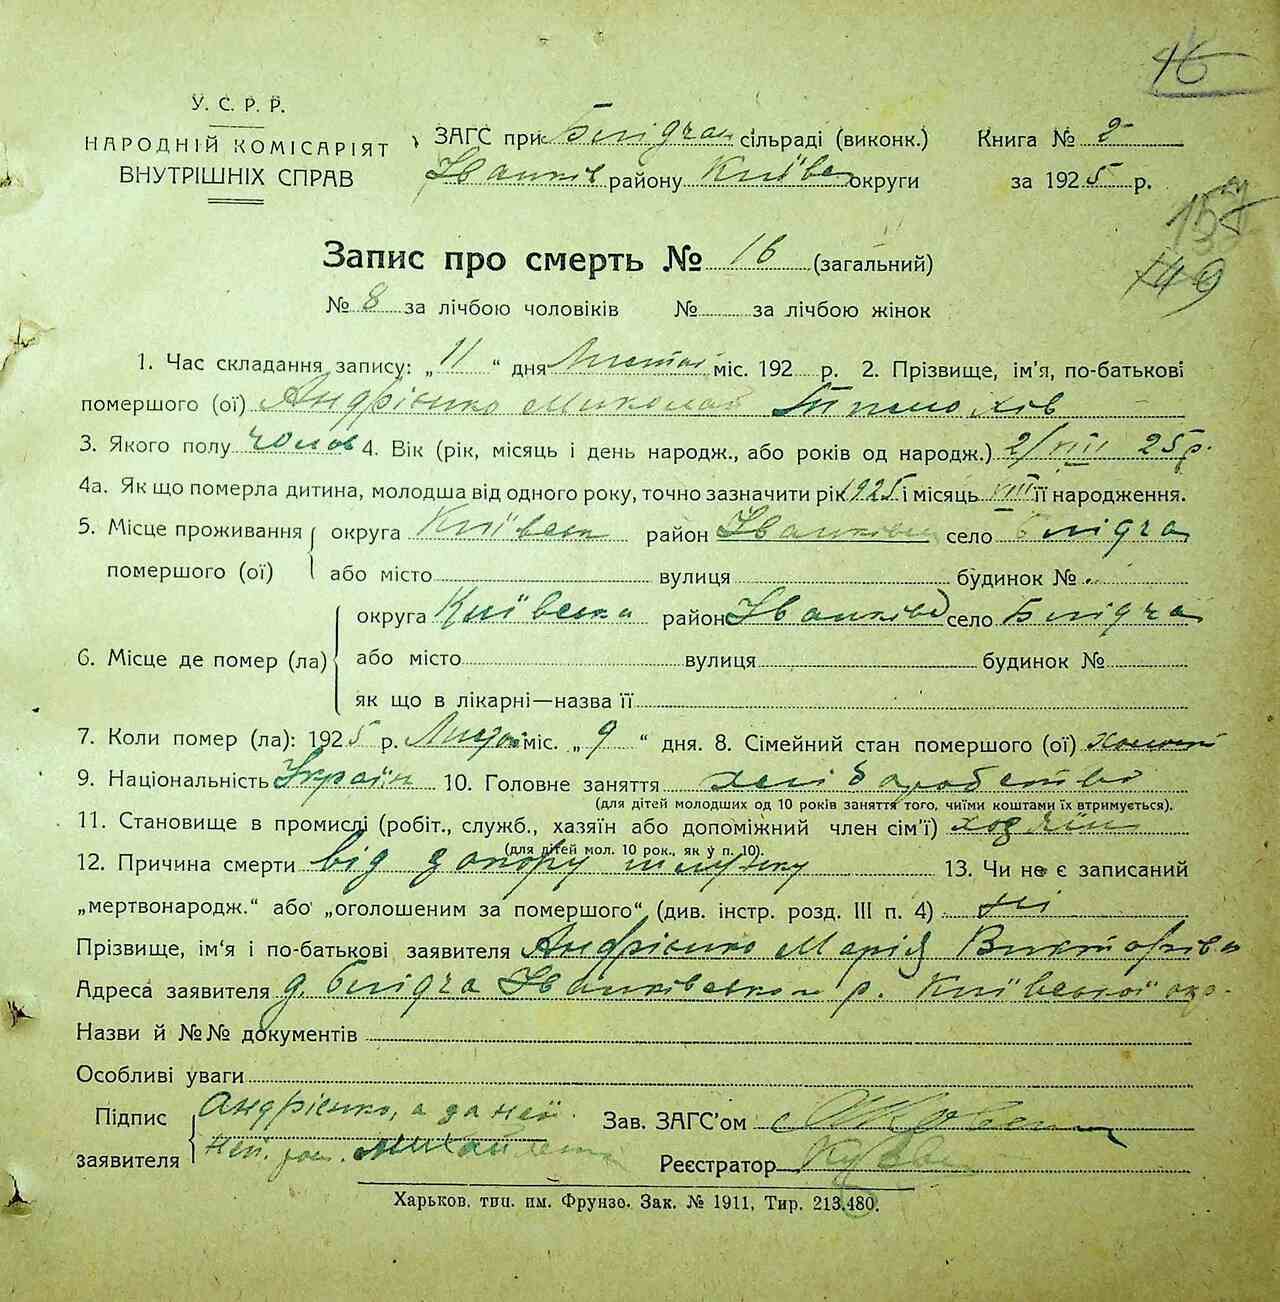 16
У. С. Р. Р.
НАРОДНІЙ КОМІСАРІЯТ
ВНУТРІШНІХ СПРАВ
ЗАГС при Блідчан сільраді (виконк.)
Іванків району Київс округи
Книга № 2
за 1925 р.
149
Запис про смерть № 16 (загальний)
№ 8 за лічбою чоловіків № за лічбою жінок
1. Час складання запису: „11“ дня Листоп міс. 192 р. 2. Прізвище, ім'я, по-батькові
помершого (ої) Андрієнко Миколай
3. Якого полу чолов 4. Вік (рік, місяць і день народж., або років од народж.) 2/VIII 25 р.
4а. Як що померла дитина, молодша від одного року, точно зазначити рік 1925 і місяць VIII її народження.
5. Місце проживання помершого (ої) округа Київськ район Іванківськ село Блідча
або місто вулиця будинок №
6. Місце де помер (ла) округа Київська район Іванківс село Блідча
або місто вулиця будинок №
як що в лікарні—назва її
7. Коли помер (ла): 1925 р. міс. „9“ дня. 8. Сімейний стан помершого (ої)
9. Національність Україн 10. Головне заняття хліборобство
(для дітей молодших од 10 років заняття того, чиїми коштами їх втримується).
11. Становище в промислі (робіт., служб., хазяїн або допоміжний член сім'ї) хозяїн
(для дітей мол. 10 рок., як у п. 10).
12. Причина смерти від 13. Чи не є записаний
„мертвонародж.“ або „оголошеним за помершого“ (див. інстр. розд. III п. 4) ні
Прізвище, ім'я і по-батькові заявителя Андрієнко Марія Викторівн
Адреса заявителя д. Блідча Іванківського р. Київської окр.
Назви й №№ документів
Особливі уваги
Підпис заявителя Андрієнко, а за неї
Зав. ЗАГС'ом
Реєстратор
Харьков. тип. им. Фрунзе. Зак. № 1911, Тир. 213.480.